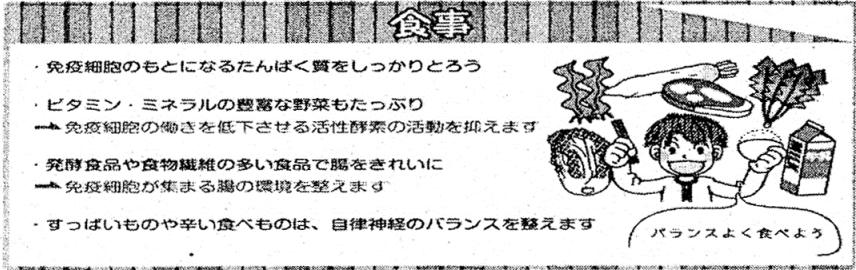 食事
・免疫細胞のもとになるたんぱく質をしっかりとろう
・ビタミン・ミネラルの豊富な野菜もたっぷり
➞免疫細胞の働きを低下させる活性酸素の活動を抑えます
・発酵食品や食物繊維の多い食品で腸をきれいに
➞免疫細胞が集まる腸の環境を整えます
・すっぱいものや辛い食べものは、自律神経のバランスを整えます
バランスよく食べよう